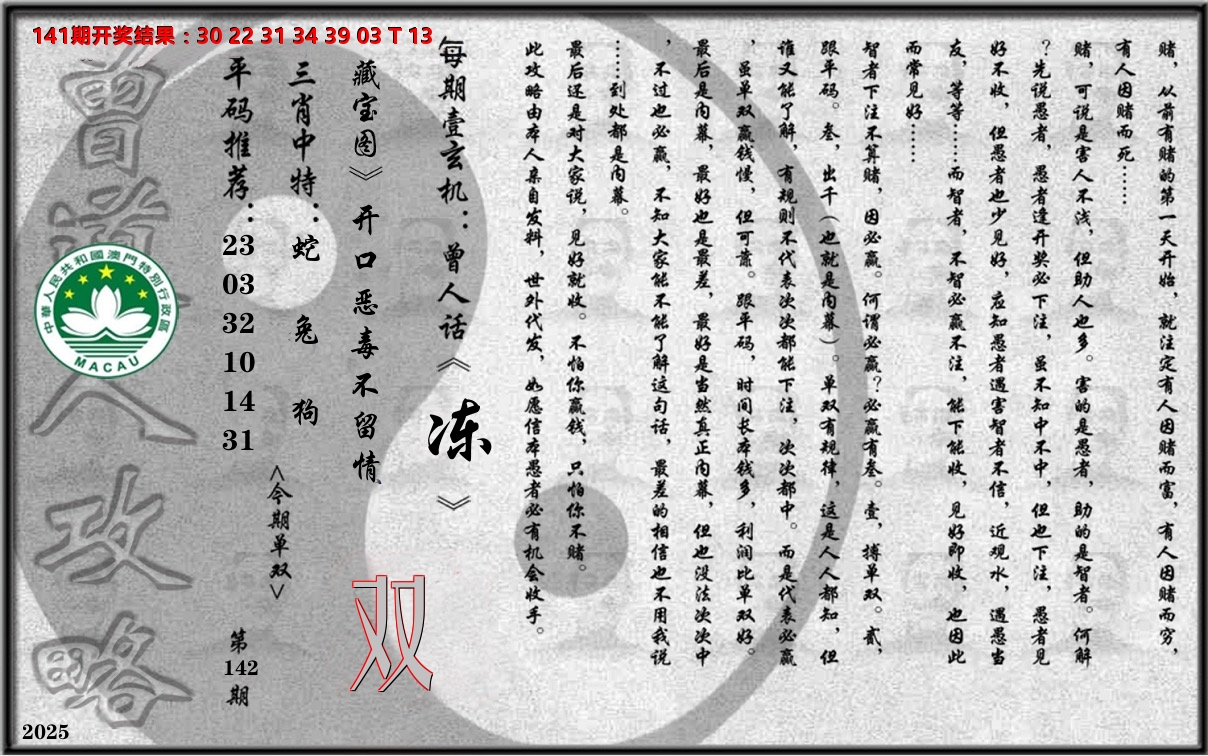 141期开奖结果：30 22 31 34 39 03 T 13
赌，从前有赌的第一天开始，就注定有人因赌而富，有人因赌而穷，
有人因赌而死……
赌，可说是害人不浅，但助人也多。害的是愚者，助的是智者。何解
？先说愚者，愚者逢开奖必下注，虽不知中不中，但也下注，愚者见
好不收，但愚者也少见好，应知愚者遇害智者不信，近观水，遇愚当
友，等等……而智者，不智必赢不注，能下能收，见好即收，也因此
而常见好……
智者下注不算赌，因必赢。何谓必赢？必赢有叁。壹，搏单双。贰，
跟平码。叁，出千（也就是内幕）。单双有规律，这是人人都知，但
谁又能了解，有规则不代表次次都能下注，次次都中。而是代表必赢
，虽单双赢钱慢，但可靠。跟平码，时间长本钱多，利润比单双好。
最后是内幕，最好也是最差，最好是当然真正内幕，但也没法次次中
，不过也必赢，不知大家能不能了解这句话，最差的相信也不用我说
……到处都是内幕。
最后还是对大家说，见好就收。不怕你赢钱，只怕你不赌。
此攻略由本人亲自发料，世外代发，如愿信本愚者必有机会收手。
每期壹玄机：曾人话《冻》
藏宝图》开口恶毒不留情
双
三肖中特：蛇 兔 狗
<今期单双>
平码推荐：23 03 32 10 14 31
第142期
曾道人攻略
中華人民共和國澳門特別行政區
MACAU
2025